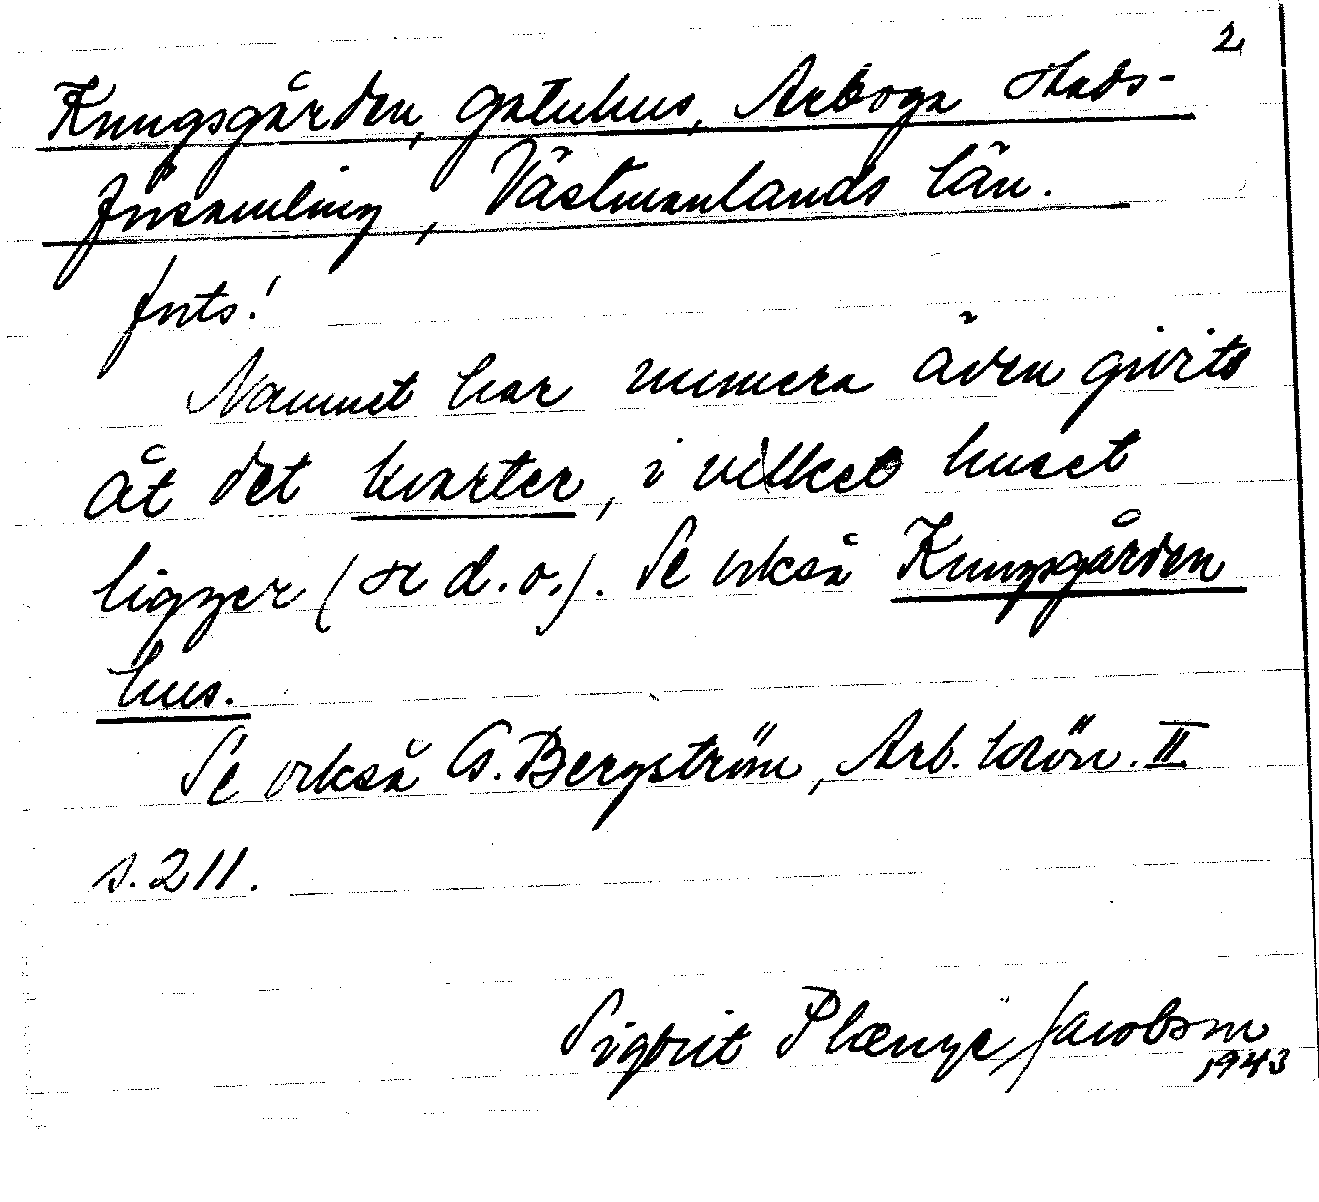 2
Kungsgården, gatuhus, Arboga stads-
församling, Västmanlands län.
forts!
Namnet har numera även givits
åt det kvarter, i vilket huset
ligger (se d.o.). Se också Kungsgården
hus.
Se också G. Bergström, Arb. krön. II
s. 211.
Sigbrit Plænge Jacobson
1943